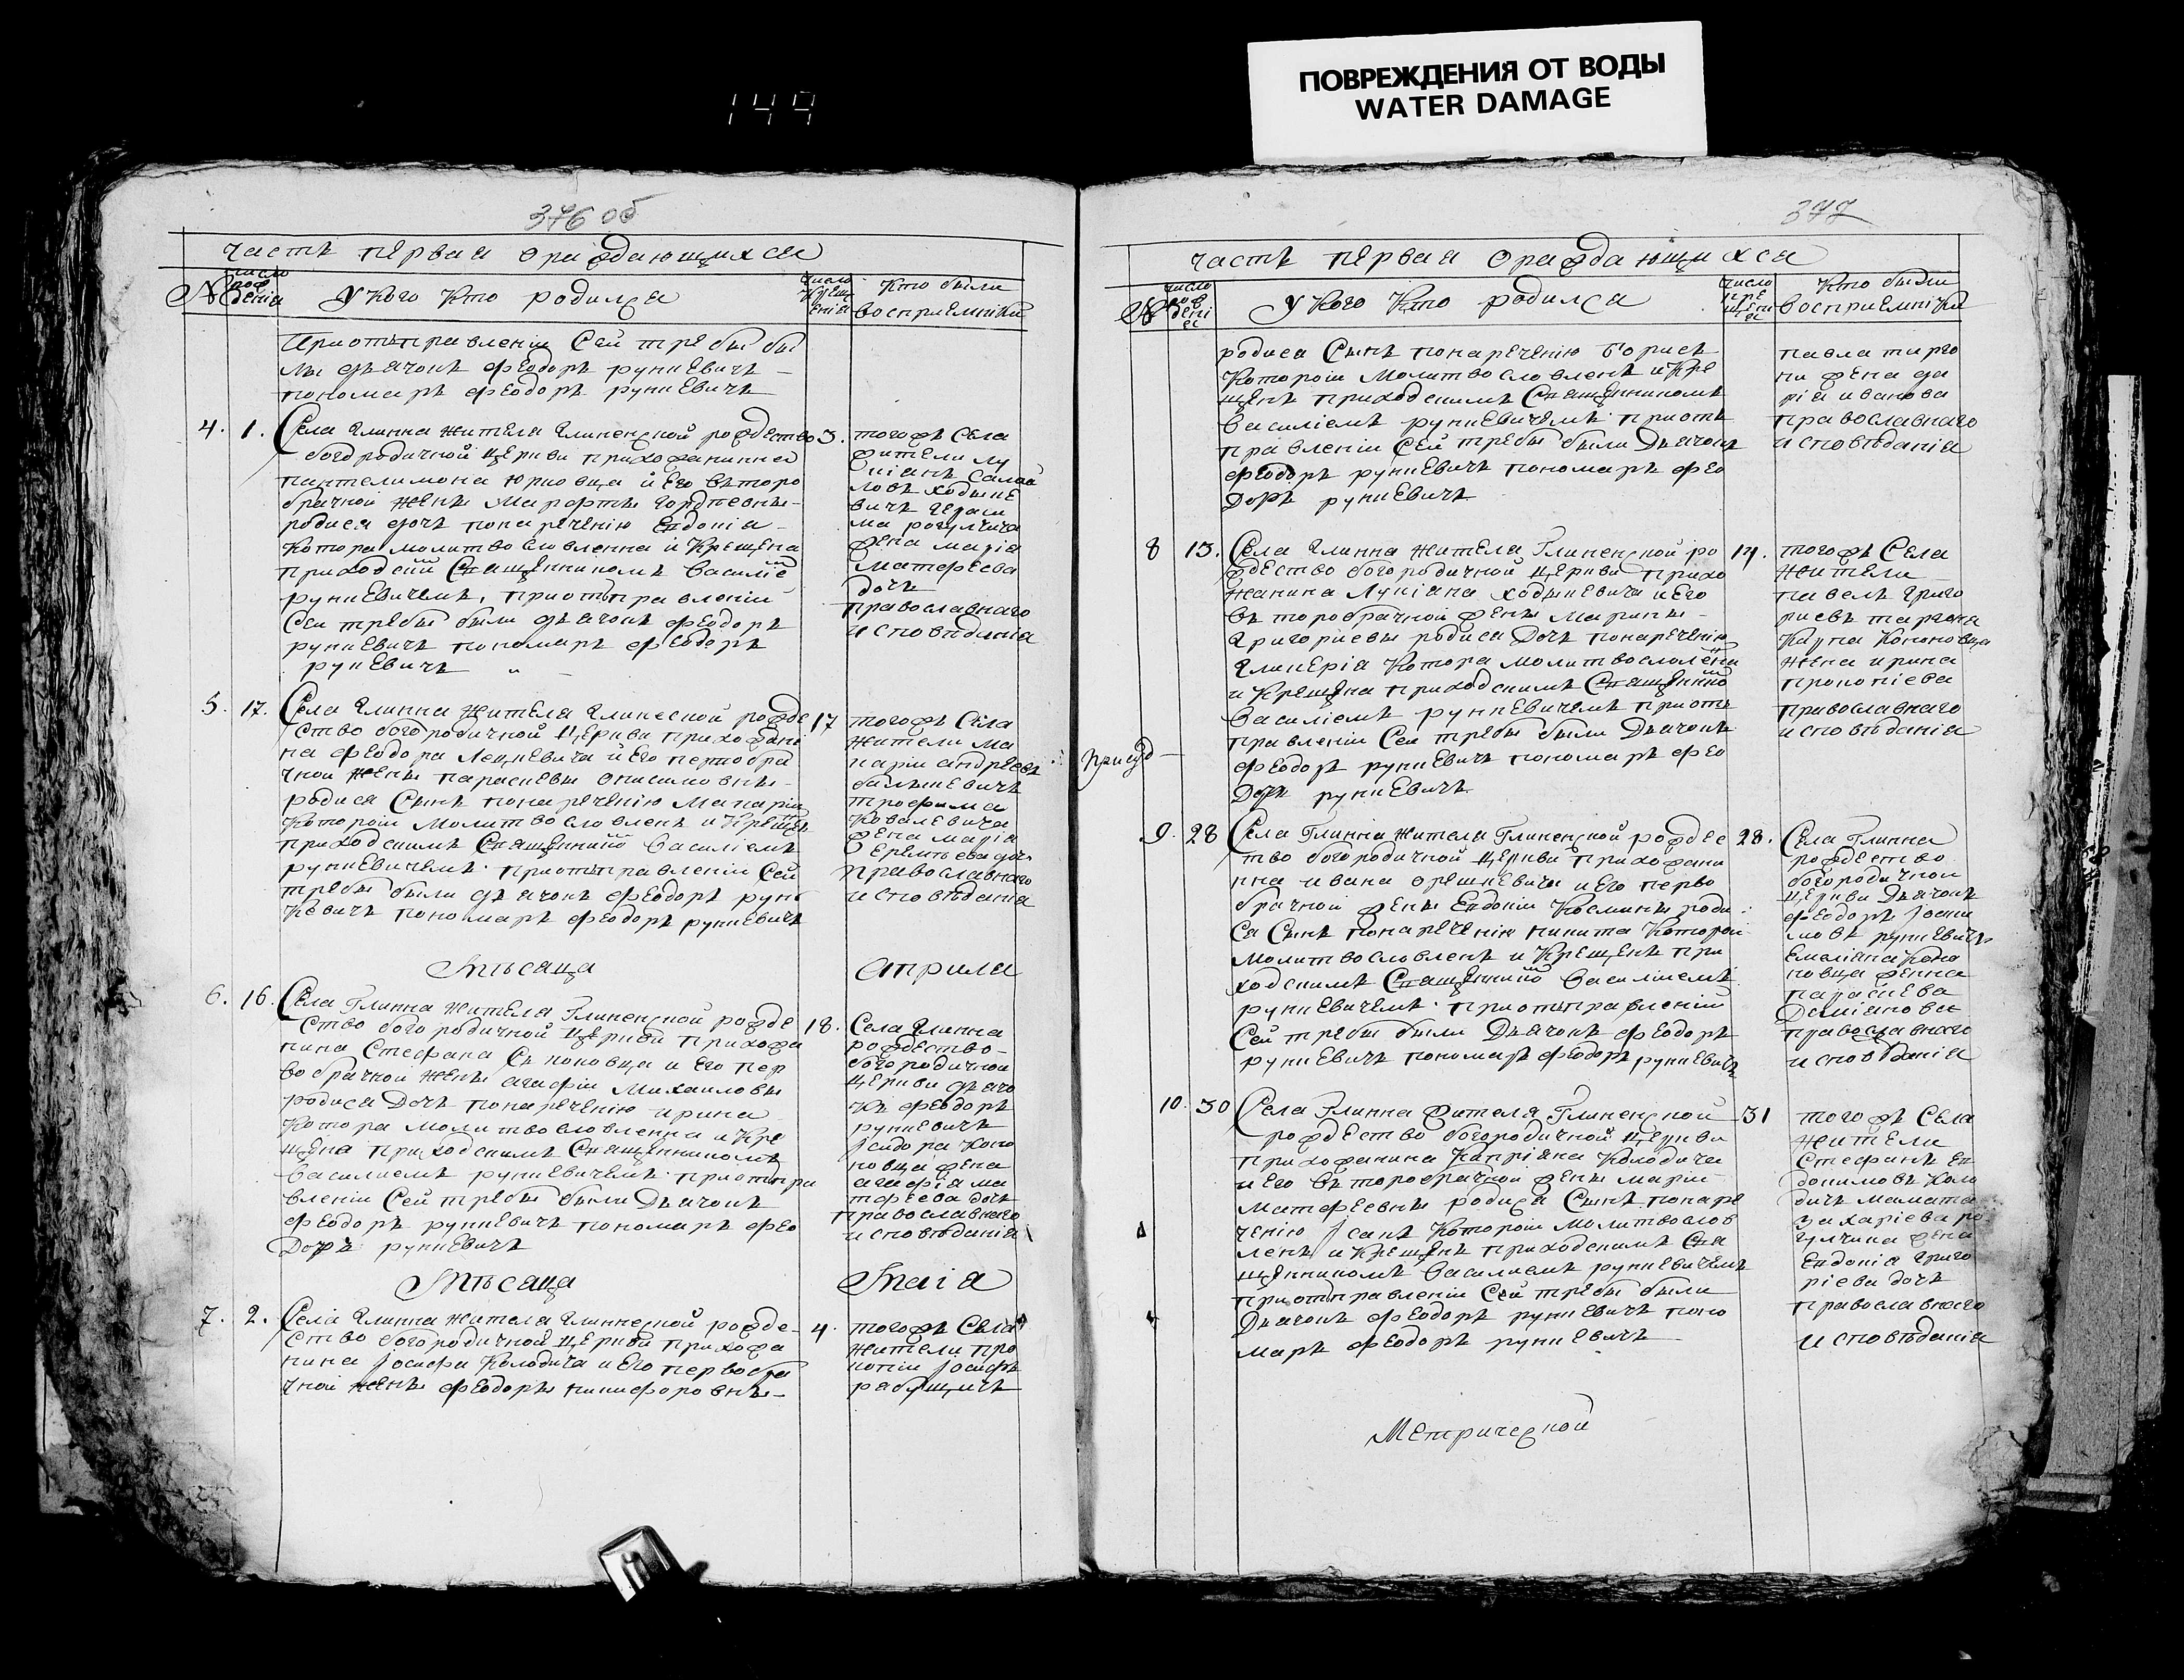 149
ПОВРЕЖДЕНИЯ ОТ ВОДЫ
WATER DAMAGE
376 об
часть первая ораждающихся
№
число рождения
У кого кто родился
число крещения
кто были
восприемники
При отправлении Сей требы бы
ли дьячокъ Феодоръ рункевичъ
пономаръ Феодоръ рункевичъ
4. 1.
Села Глинна жителя Глиненской рождество
богородичной церкви прихожанина
пантелимона юрковца и его второ
брачной жены Марфты гордиевны
родися дочъ понаречению Евдокіа
Котора молитвословленна и Крещена
приходским Священникомъ Василіе
рункевичемъ, приотправленіи
Сеи требы были дьячокъ Феодоръ
рункевичъ пономаръ Феодоръ
рункевичъ
3.
тогожъ Села
жители лу
кіанъ Самой
ловъ ходыке
вичъ гераси
ма рогулчича
жена маріа
Матфеева
дочъ
православнаго
исповѣданіа
5. 17.
Села Глинна жителя Глинеской рожде
ство богородичной Церкви прихожани
на Феодора Лецкевича и Его первобра
чной жены параскевы Онисимовны
родися Сынъ понаречению Макарій
Которой Молитвословленъ и Крещен
приходскимъ Священнико Василіемъ
рункевичемъ приотправленіи Сей
требы были дьячокъ Феодоръ рун
кевичъ пономаръ Феодоръ рункевичъ
17
тогожъ Села
жители ма
карій андреевъ
трофима
Ковалевича
жена маріа
православнаго
исповѣданіа
Мѣсаца априля
6. 16.
Села Глинна жителя Глиненской рожде
ство богородичной Церкви прихожа
нина Стефана Симоновца и Его пер
вобрачной жены агафіи Михаиловы
родися Дочъ понаречению ирина
Котора молитвословленна и Кре
щена приходскимъ Священникомъ
Василиемъ рункевичемъ приотпра
вленіи Сей требы были Дьячокъ
Феодоръ рункевичъ пономаръ Фео
доръ рункевичъ
18.
Села Глинна
рождество
богородичной
церкви дьячо
къ Феодоръ
рункевичъ
Ісидора Коно
новца жена
агафіа ма
тфеева дочъ
православнаго
исповѣданіа
Мѣсаца Маіа
7. 2.
Села Глинна жителя Глинеской рожде
ство богородичной Церкви прихожа
нина Іосифа Колодича и Его первобра
чной жены Феодоры никифоровны
4.
тогожъ Села
жители про
копій Іосифъ
377
часть первая ораждающихся
№
число рождения
У кого кто родился
число крещения
Кто были
восприемники
родися Сынъ понаречению борисъ
Которои Молитвословленъ и Кре
щенъ приходскимъ Священникомъ
Василіемъ рункевичемъ приотъ
правленіи Сей требы были Дьячокъ
Феодоръ рункевичъ пономаръ Фео
Доръ рункевичъ
павла тарго
ни жена да
рія иванова
православнаго
исповѣданіа
8 13.
Села Глинна жителя Глиненской ро
ждество богородичной церкви прихо
жанина Лукіана ходыкевича и Его
второбрачной жены Марины
Григориевны родися Дочъ понаречению
Гликеріа Котора молитвословлена
и Крещена приходскимъ Священнико
Василіемъ рункевичемъ приотъ
правленіи Сеи требы были Дьячокъ
Феодоръ рункевичъ пономаръ Фео
Доръ рункевичъ
14.
тогожъ Села
жители
павелъ григо
риевъ таргоня
Карпа Кононовца
жена ирина
прокопіева
православнаго
исповѣданіа
9. 28
Села Глинна жителя Глиненской рождес
тво богородичной церкви прихожани
нна ивана орешкевича и Его перво
брачной жены Евдокіи Космины роди
ся Сынъ понаречению никита Которои
молитвословленъ и Крещенъ при
ходскимъ Священнико Василіемъ
рункевичемъ приотправленіи
Сей требы были Дьячокъ Феодоръ
рункевичъ пономаръ Феодоръ рункевичъ
28.
Села Глинна
рождество
богородичной
церкви Дьячокъ
Феодоръ Іоаки
мовъ рункевичъ
Емеліяна Коно
новца женна
параскева
Деміанова
православнаго
исповѣданіа
10. 30
Села Глинна Жителя Глиненской
рождество богородичной Церкви
прихожанина Капріяна Колодича
и его второбрачной жены маріи
Матфеевны родися Сынъ понаре
чению Ісакъ Которои молитвослов
ленъ и Крещенъ приходскимъ Свя
щенникомъ Василиемъ рункевичемъ
приотправленіи Сей требы были
Дьячокъ Феодоръ рункевичъ поно
маръ Феодоръ рункевичъ
31
тогожъ Села
жители
Стефанъ Ев
докимовъ Коло
дичъ мамата
захаріева ро
гулчича жена
Евдокіа григо
ріева дочъ
православнаго
исповѣданіа
Метрической